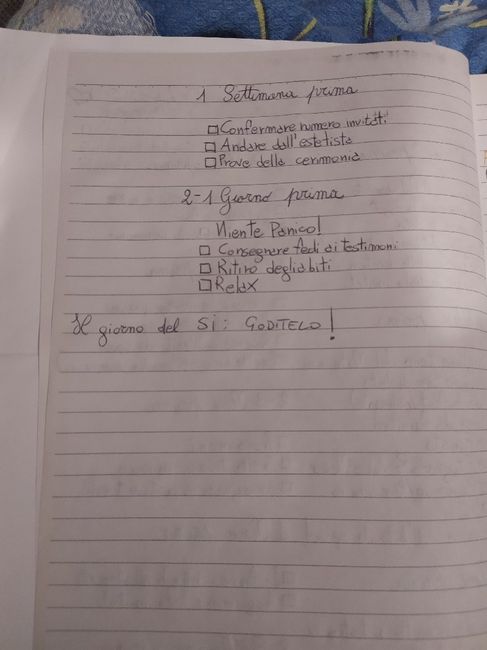 1 Settimana prima
□ Confermare numero invitati
□ Andare dall'estetista
□ Prove della cerimonia
2-1 Giorno prima
Niente Panico!
□ Consegnare fedi ai testimoni
□ Ritiro degli abiti
□ Relax
Il giorno del Si: GODITELO!